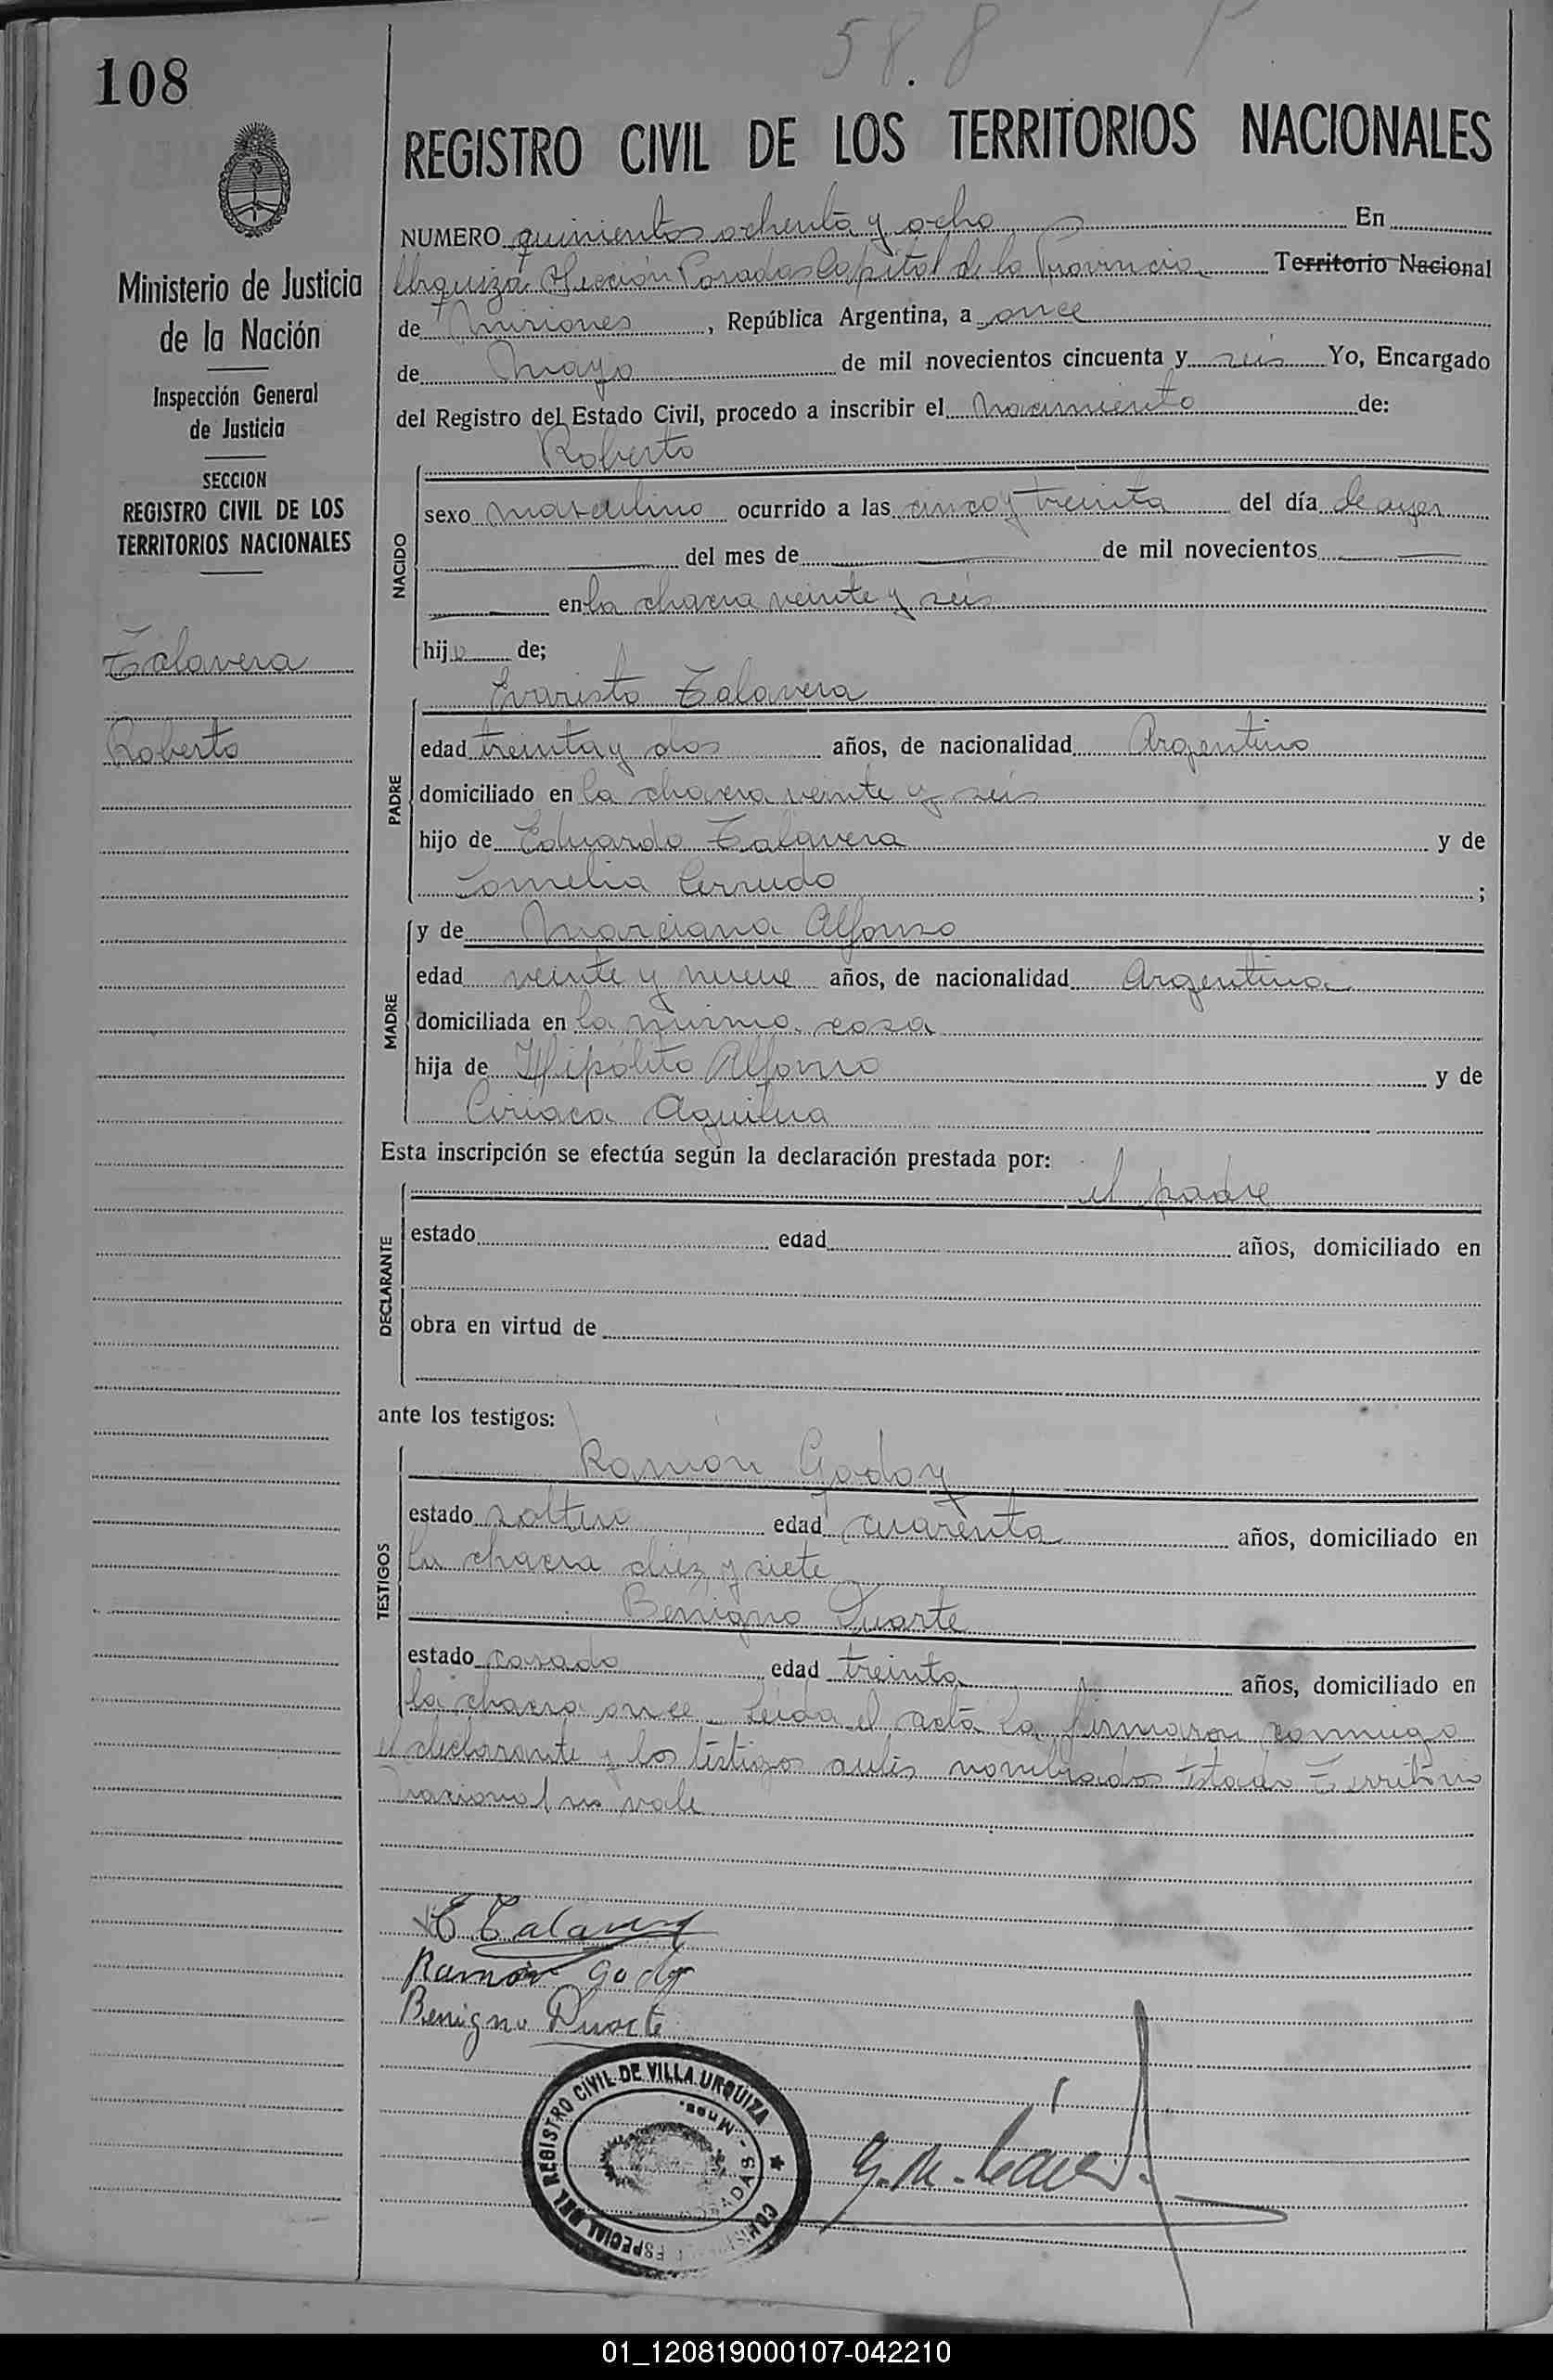 58.8
108
REGISTRO CIVIL DE LOS TERRITORIOS NACIONALES
NUMERO quinientos ochenta y ocho En
Urquiza Sección Posadas Capital de la Provincia Territorio Nacional
de Misiones, República Argentina, a once
de Mayo de mil novecientos cincuenta y seis Yo, Encargado
del Registro del Estado Civil, procedo a inscribir el Nacimiento de:
Ministerio de Justicia
de la Nación
Inspección General
de Justicia
SECCION
REGISTRO CIVIL DE LOS
TERRITORIOS NACIONALES
Talavera
Roberto
NACIDO
Roberto
sexo masculino ocurrido a las cinco y treinta del día de ayer
del mes de de mil novecientos
en la chacra veinte y seis
hijo de;
PADRE
Evaristo Talavera
edad treinta y dos años, de nacionalidad Argentino
domiciliado en la chacra veinte y seis
hijo de Eduardo Talavera y de
Cerrudo ;
MADRE
y de Marciana Alfonso
edad veinte y nueve años, de nacionalidad Argentina
domiciliada en la misma casa
hija de Hipólito Alfonso y de
Ciriaca Aguilera
Esta inscripción se efectúa según la declaración prestada por:
DECLARANTE
el padre
estado edad años, domiciliado en
obra en virtud de
ante los testigos:
TESTIGOS
Ramón Godoy
estado soltero edad cuarenta años, domiciliado en
la chacra diez y siete
Benigno Duarte
estado casado edad treinta años, domiciliado en
la chacra once Leida el acta la firmaron conmigo
el declarante y los testigos antes nombrados Testado Territorio
Nacional no vale
E Talavera
Ramón Godoy
Benigno Duarte
ESPECIAL DEL REGISTRO CIVIL DE VILLA URQUIZA
POSADAS - Mnes.
01_120819000107-042210